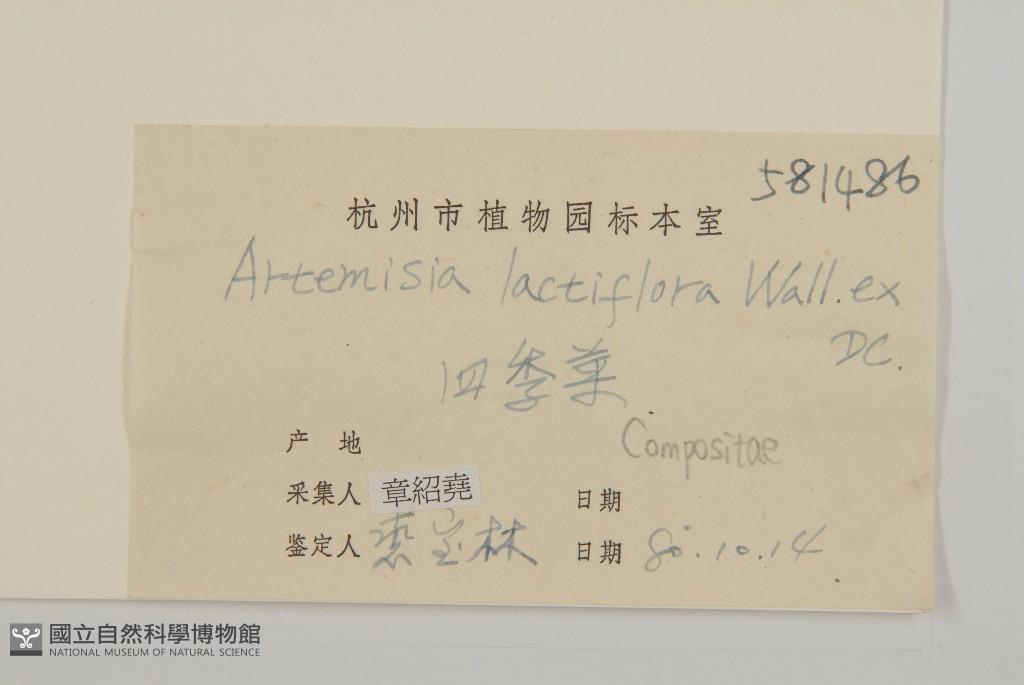 581486
杭州市植物园标本室
Artemisia lactiflora Wall. ex
DC.
四季菜
产 地
Compositae
采集人 章紹堯 日期
鉴定人 裘宝林 日期 80.10.14
國立自然科學博物館
NATIONAL MUSEUM OF NATURAL SCIENCE